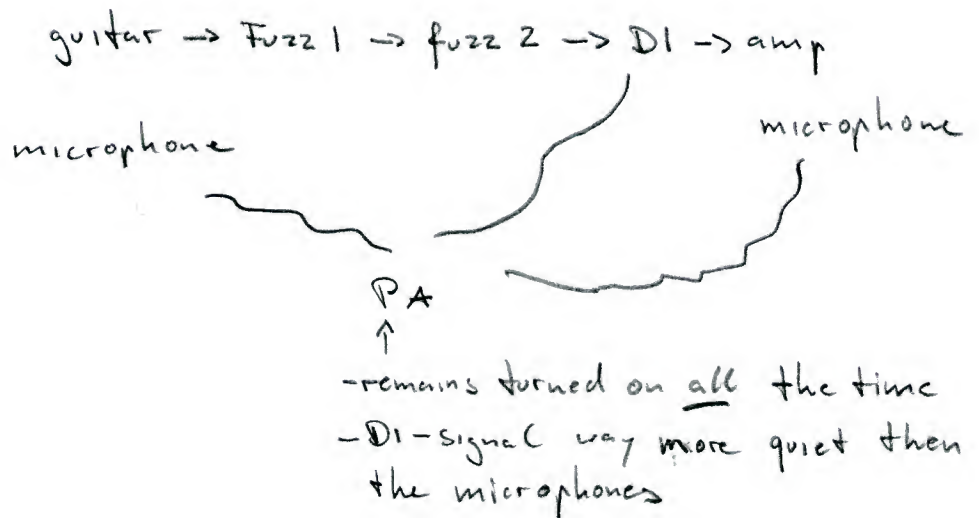 guitar -> Fuzz 1 -> fuzz 2 -> DI -> amp
microphone
microphone
PA
↑
-remains turned on all the time
-DI-signal way more quiet then
the microphones